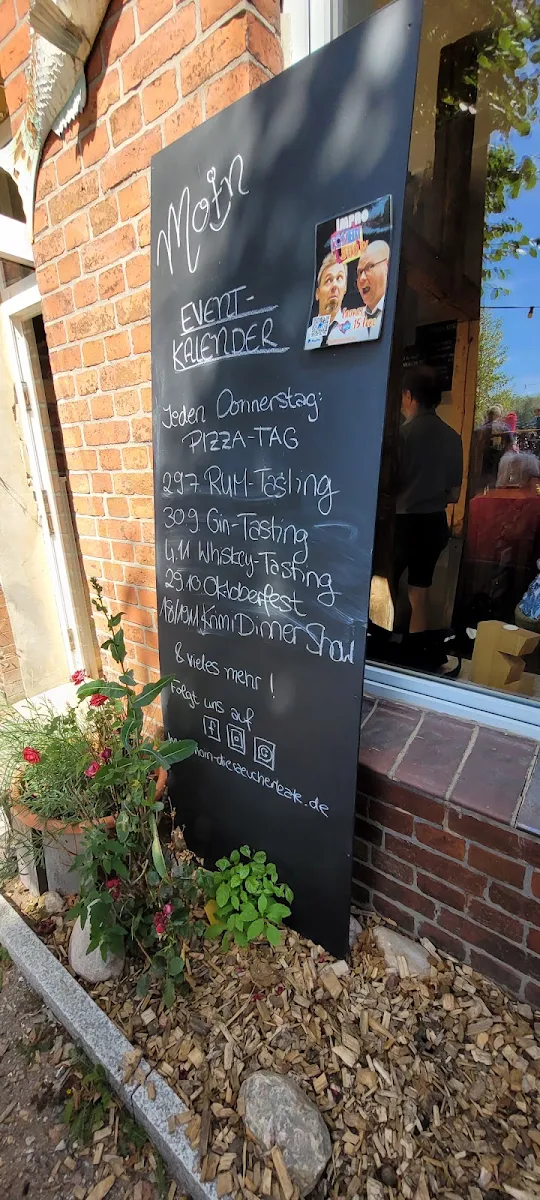 Moin
IMPRO
COMEDY
EVENT-
KALENDER
Jeden Donnerstag:
PIZZA-TAG
29.7. RUM-Tasting
30.9. Gin-Tasting
4.11 Whiskey-Tasting
29.10. Oktoberfest
18/19.11. Krimi Dinner Show
& vieles mehr!
Folgt uns auf
f